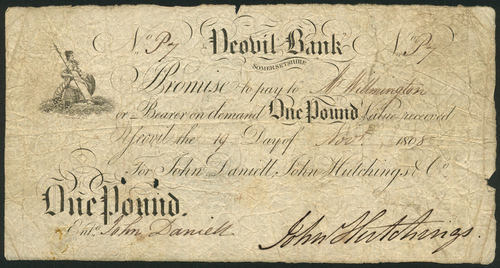 No P7 Yeovil Bank No P7
SOMERSETSHIRE
Promise to pay to Mr Willmington
or Bearer on demand One Pound Value received
Yeovil the 19 Day of Novr 1808
For John Daniell, John Hutchings & Co
One Pound.
Entd. John Daniell John Hutchings